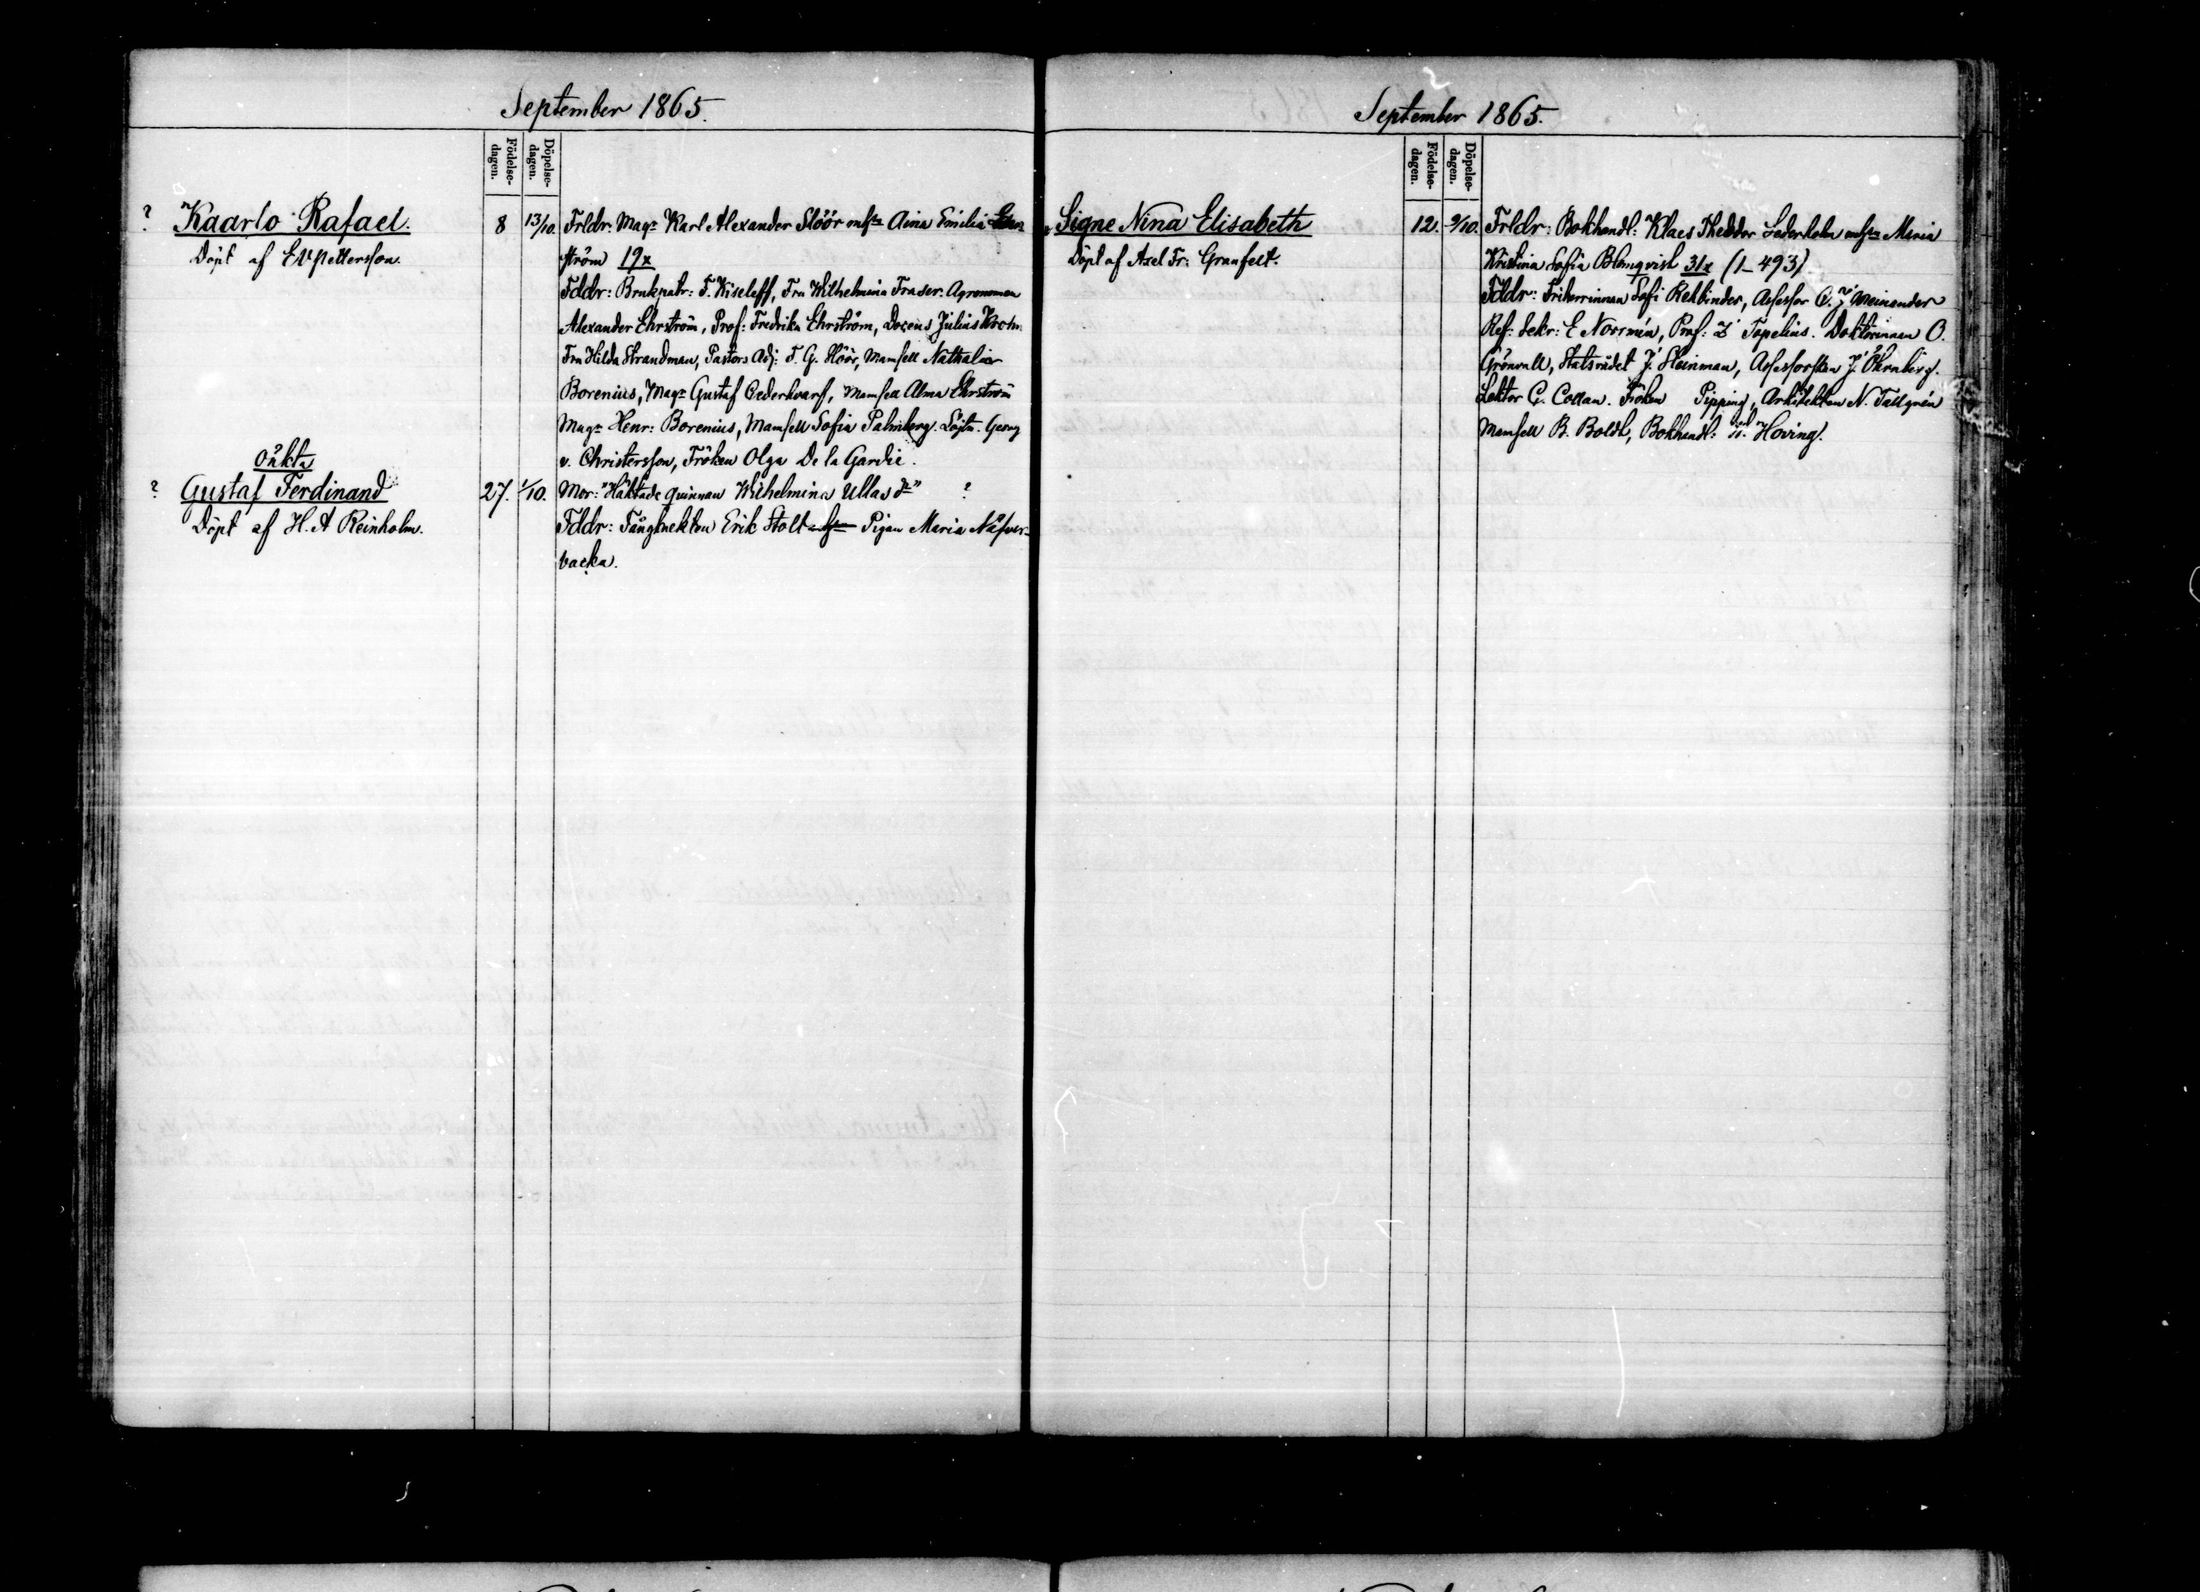 September 1865.
Födelse-
dagen.
Döpelse-
dagen.
? Kaarlo Rafael. 8 13/10. Frldr: Magr Karl Alexander Slöör mhstr Aina Emilia
Döpt af EVPettersson.
ström 19x
Fddr: Brukpatr: F. Kiseleff, Fru Wilhelmina Fraser. Agronomen
Alexander Ehrström, Prof: Fredrika Ehrström, Docens Julius Krohn
Fru Hilda Strandman, Pastors Adj: F. G. Slöör, Mamsell Nathalia
Borenius, Magr Gustaf Cederkvarf, Mamsell Alma Ehrström
Magr Henr: Borenius, Mamsell Sofia Palmberg. Löjtn. Georg
v. Christersson, Fröken Olga De la Gardie.
oäkta
? Gustaf Ferdinand 27. 1/10. Mor: "Häktade qvinnan Wilhelmina Ullas dr" ?
Döpt af H. A Reinholm. Fddr: Fångknekten Erik Stolt Pigan Maria Näfver-
backa.
September 1865.
Födelse-
dagen.
Döpelse-
dagen.
Signe Nina Elisabeth 12. 9/10. Frldr: Bokhandl: Klaes Theodor Sederholm mhstr Maria
Döpt af Axel Fr: Granfelt. Kristina Sofia Blomqvist 31x (1–493)
Fddr: Friherrinnan Sofi Rehbinder, Assessor C. J. Meinander
Ref: Sekr: E Norrmén, Prof: Z Topelius. Doktorinnan O.
Grönvall, Statsrådet J. Steinman, Assessorskan J. Öhrnberg.
Lektor C. Collan. Fröken Pipping, Arkitekten N. Tallgrén
Mamsell B. Boldt, Bokhandl: Hoving.